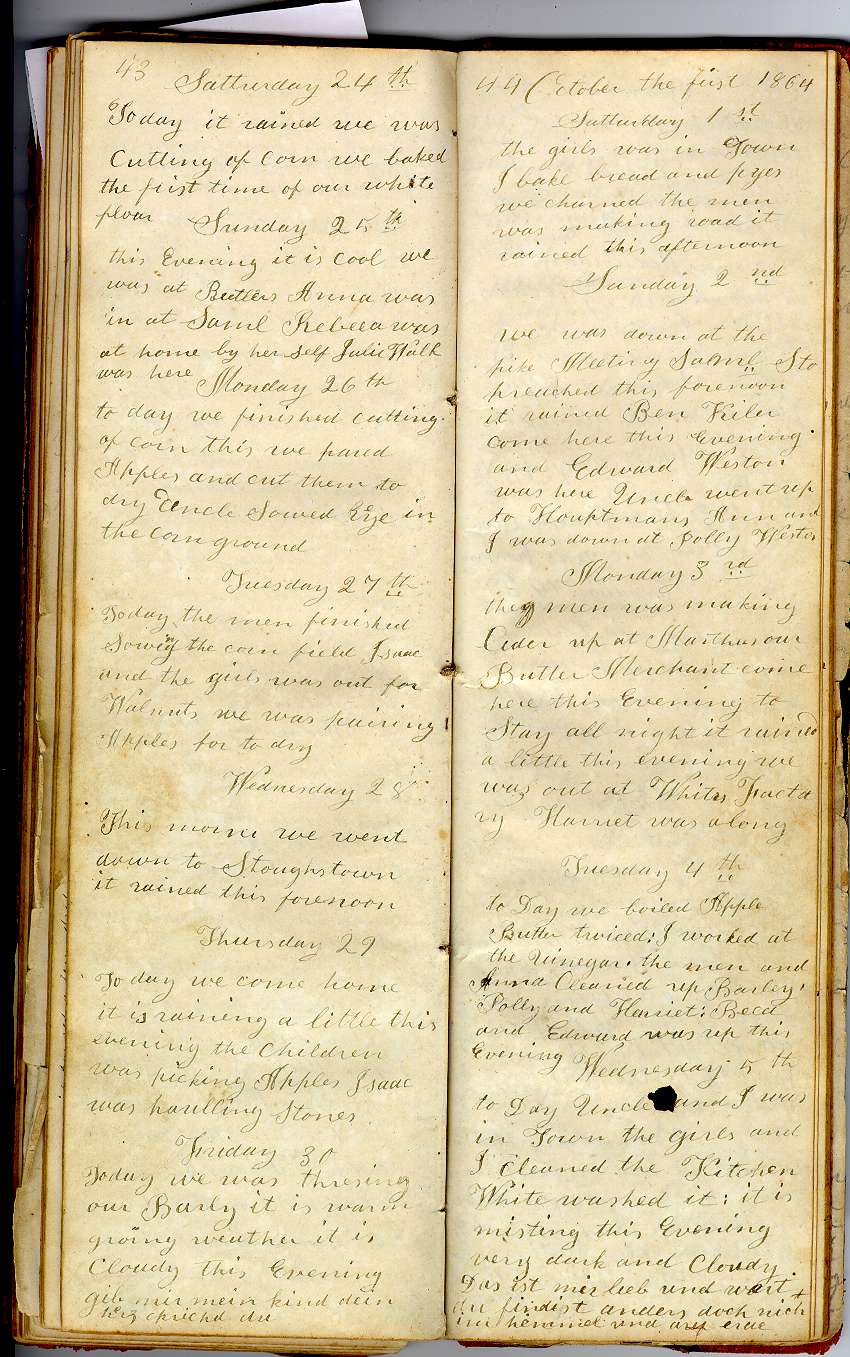 43
Satturday 24th
Today it rained we was
Cutting of Corn we baked
the first time of our white
flour
Sunday 25th
this Evening it is Cool we
was at Butlers Anna was
in at Saml Rebecca was
at home by her self Julie Walk
was here
Monday 26th
to day we finished cutting
of corn this we pared
Apples and cut them to
dry Uncle Sowed Rye in
the Corn ground
Tuesday 27th
Today the men finished
Sowing the corn field Isaac
and the girls was out for
Walnuts we was pairing
Apples for to dry
Wednesday 28
This morni we went
down to Stoughstown
it rained this forenoon
Thursday 29
To day we come home
it is raining a little this
evening the Children
was picking Apples Isaac
was haulling Stones
Friday 30
Today we was thresing
our Barly it is warm
growing weather it is
Cloudy this Evening
gib mir mein kind dein
herz sprichd du
44 October the first 1864
Satturday 1st
the girls was in Town
I bake bread and pyes
we churned the men
was making road it
rained this afternoon
Sunday 2nd
we was down at the
pike Meeting Saml Sto
preached this forenoon
it rained Ben Kiler
come here this Evening
and Edward Weston
was here Uncle went up
to Houptmans Ann and
I was down at Polly Westos
Monday 3rd
they men was making
Cider up at Marthas our
Butter Merchant come
here this Evening to
Stay all night it rained
a little this evening we
was out at Whites Facta
ry Harriet was along
Tuesday 4th
to Day we boiled Apple
Butter twiced: I worked at
the Vinegar. the men and
Anna Cleaned up Barley,
Polly and Harriet: Beca
and Edward was up this
Evening
Wednesday 5th
to Day Uncle and I was
in Town the girls and
I cleaned the Kitchen
White washed it: it is
misting this Evening
very dark and Cloudy
Das ist mir lieb und wert
du findest anders doch nich
im hemmel und auf erde